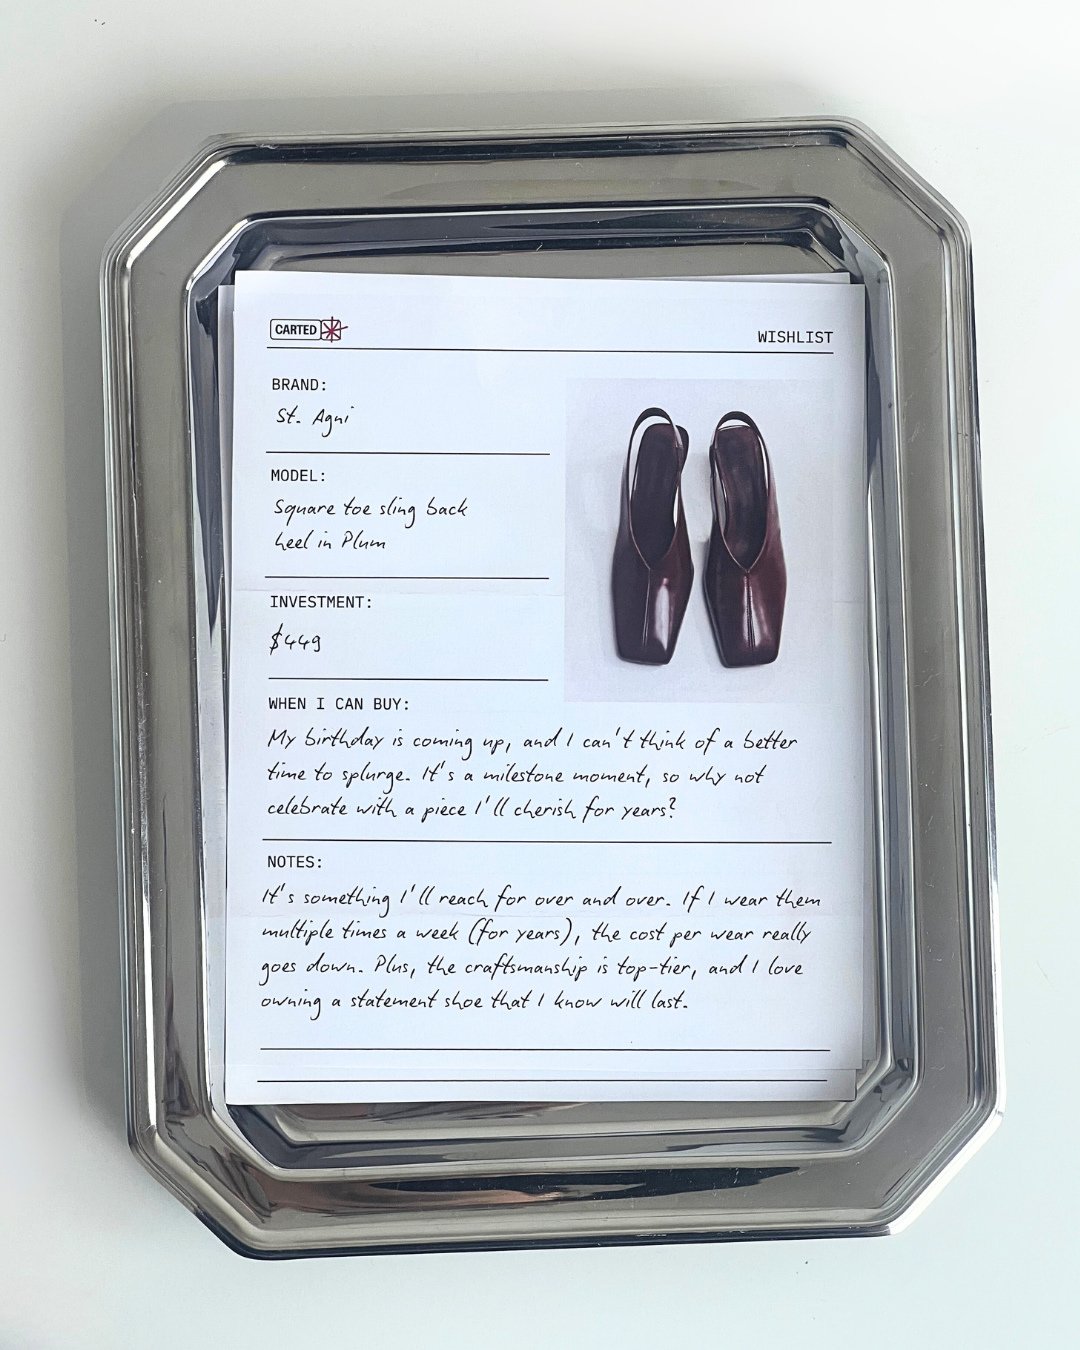 CARTED
WISHLIST
BRAND:
St. Agni
MODEL:
Square toe sling back
heel in Plum
INVESTMENT:
$449
WHEN I CAN BUY:
My birthday is coming up, and I can't think of a better
time to splurge. It's a milestone moment, so why not
celebrate with a piece I'll cherish for years?
NOTES:
It's something I'll reach for over and over. If I wear them
multiple times a week (for years), the cost per wear really
goes down. Plus, the craftsmanship is top-tier, and I love
owning a statement shoe that I know will last.